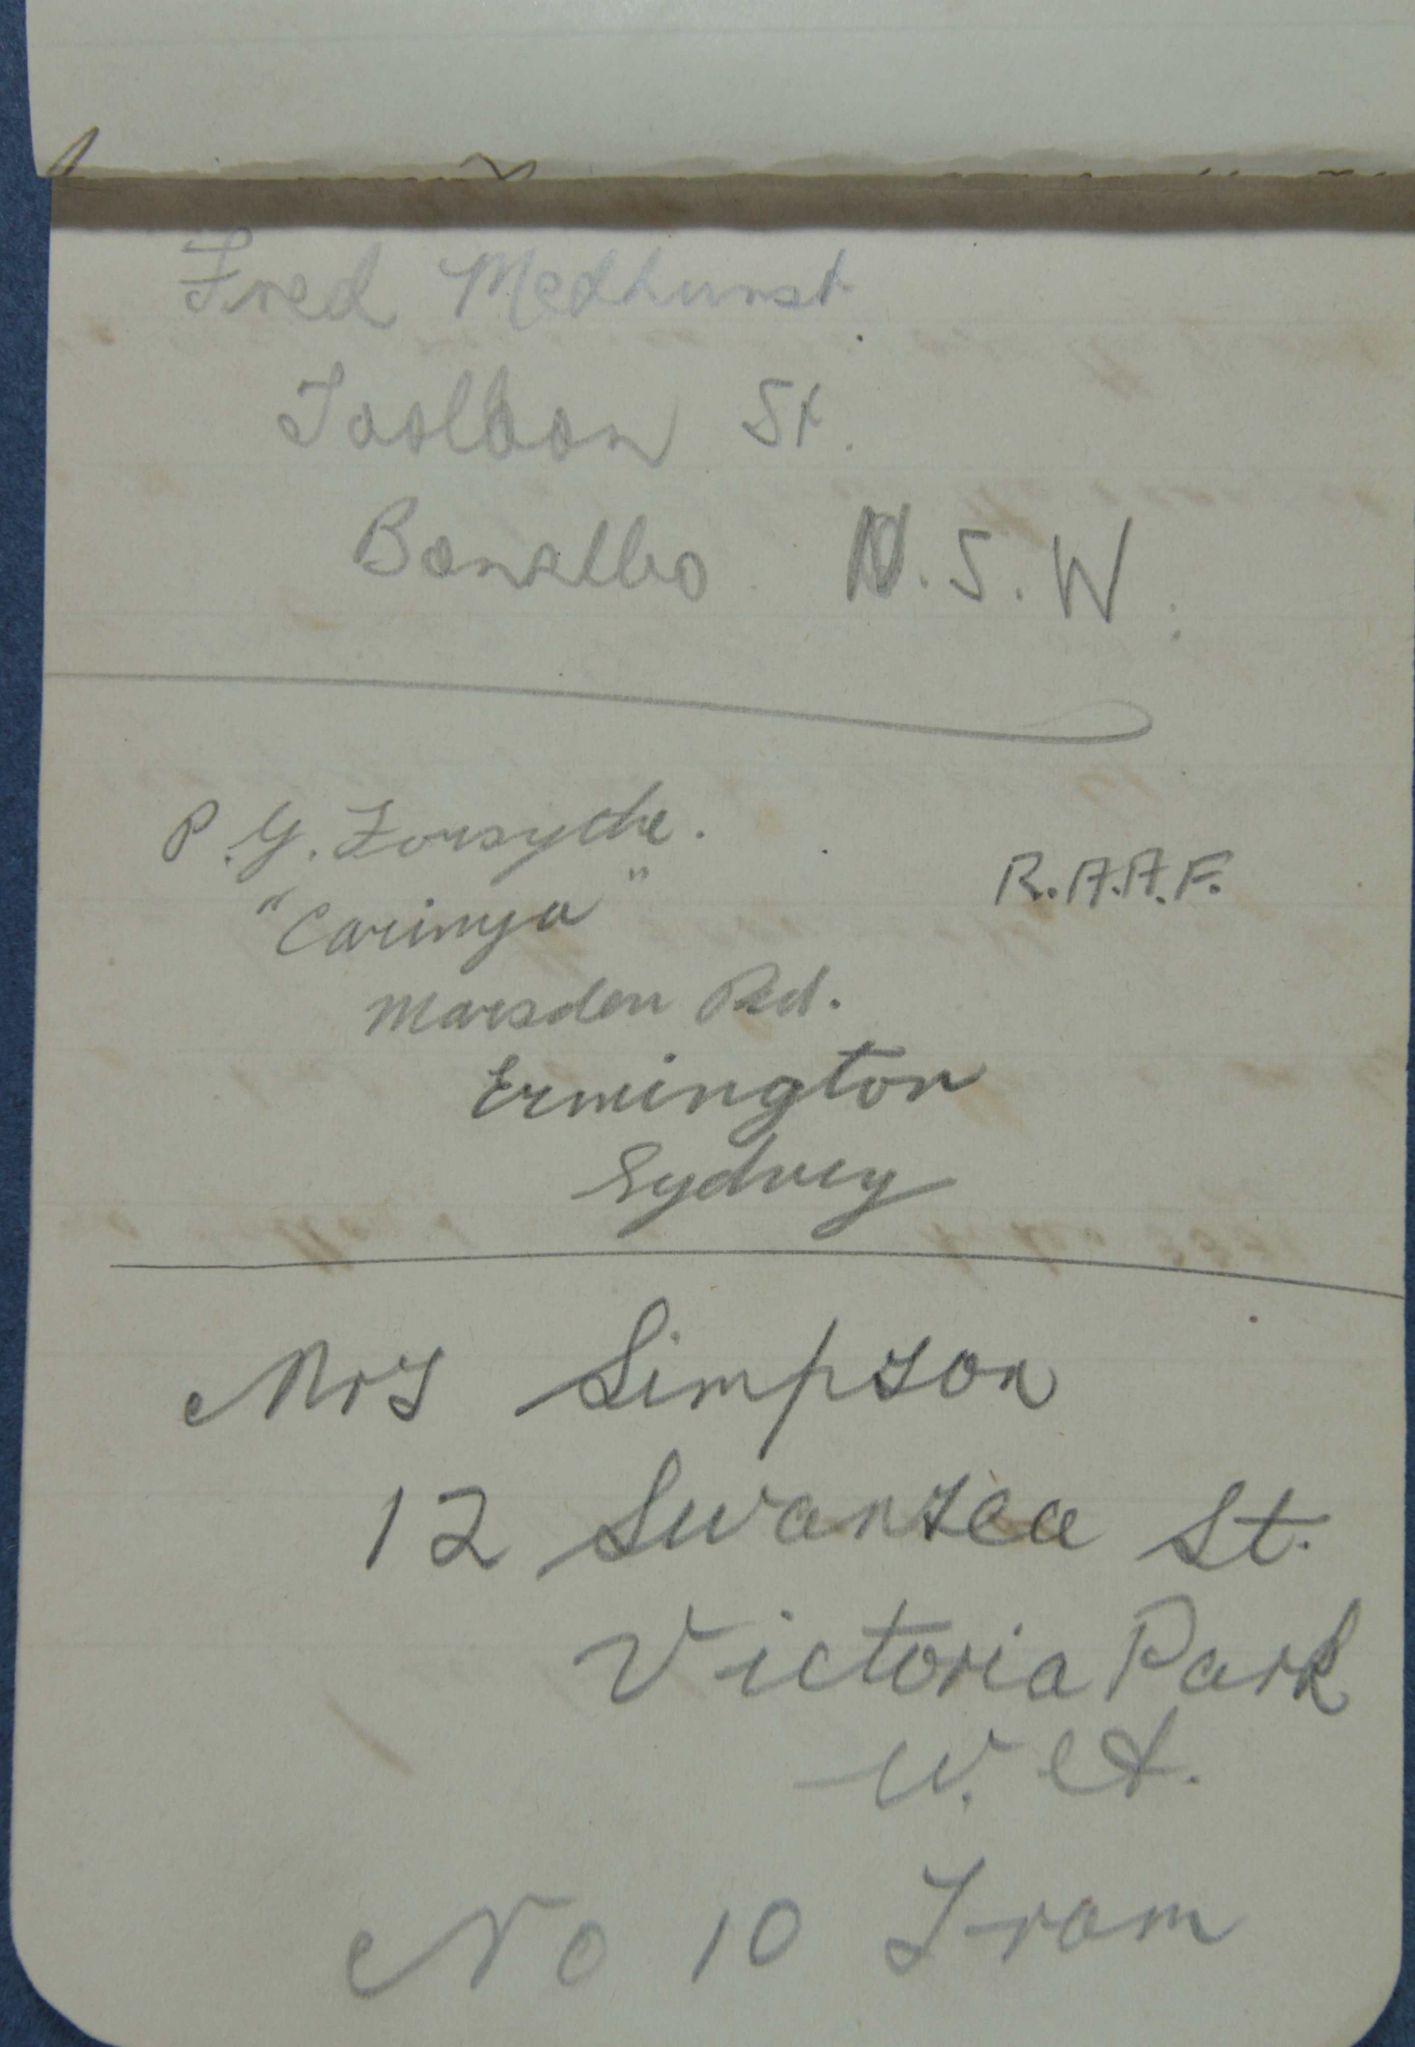 Fred Medhurst
Toolbon St.
Bonalbo N.S.W.
P.G. Forsythe.
"Carinya" R.A.A.F.
Marsden Rd.
Ermington
Sydney
Mrs Simpson
12 Swansea St.
Victoria Park
W. A.
No 10 Tram